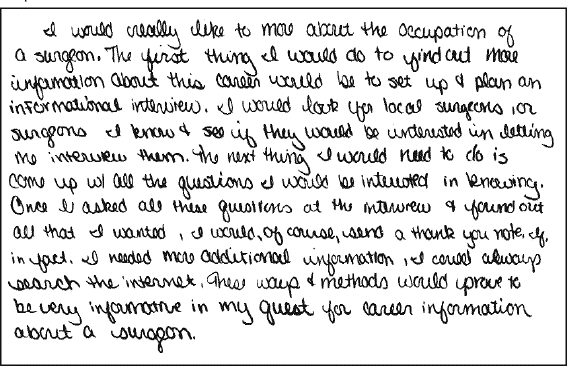 I would really like to more about the occupation of
a surgeon. The first thing I would do to find out more
information about this career would be to set up & plan an
informational interview. I would look for local surgeons, or
surgeons I know & see if they would be interested in letting
me interview them. The next thing I would need to do is
come up w/ all the questions I would be interested in knowing.
Once I asked all these questions at the interview & found out
all that I wanted, I would, of course, send a thank you note. If,
in fact, I needed more additional information, I could always
search the internet. These ways & methods would prove to
be very informative in my quest for career information
about a surgeon.